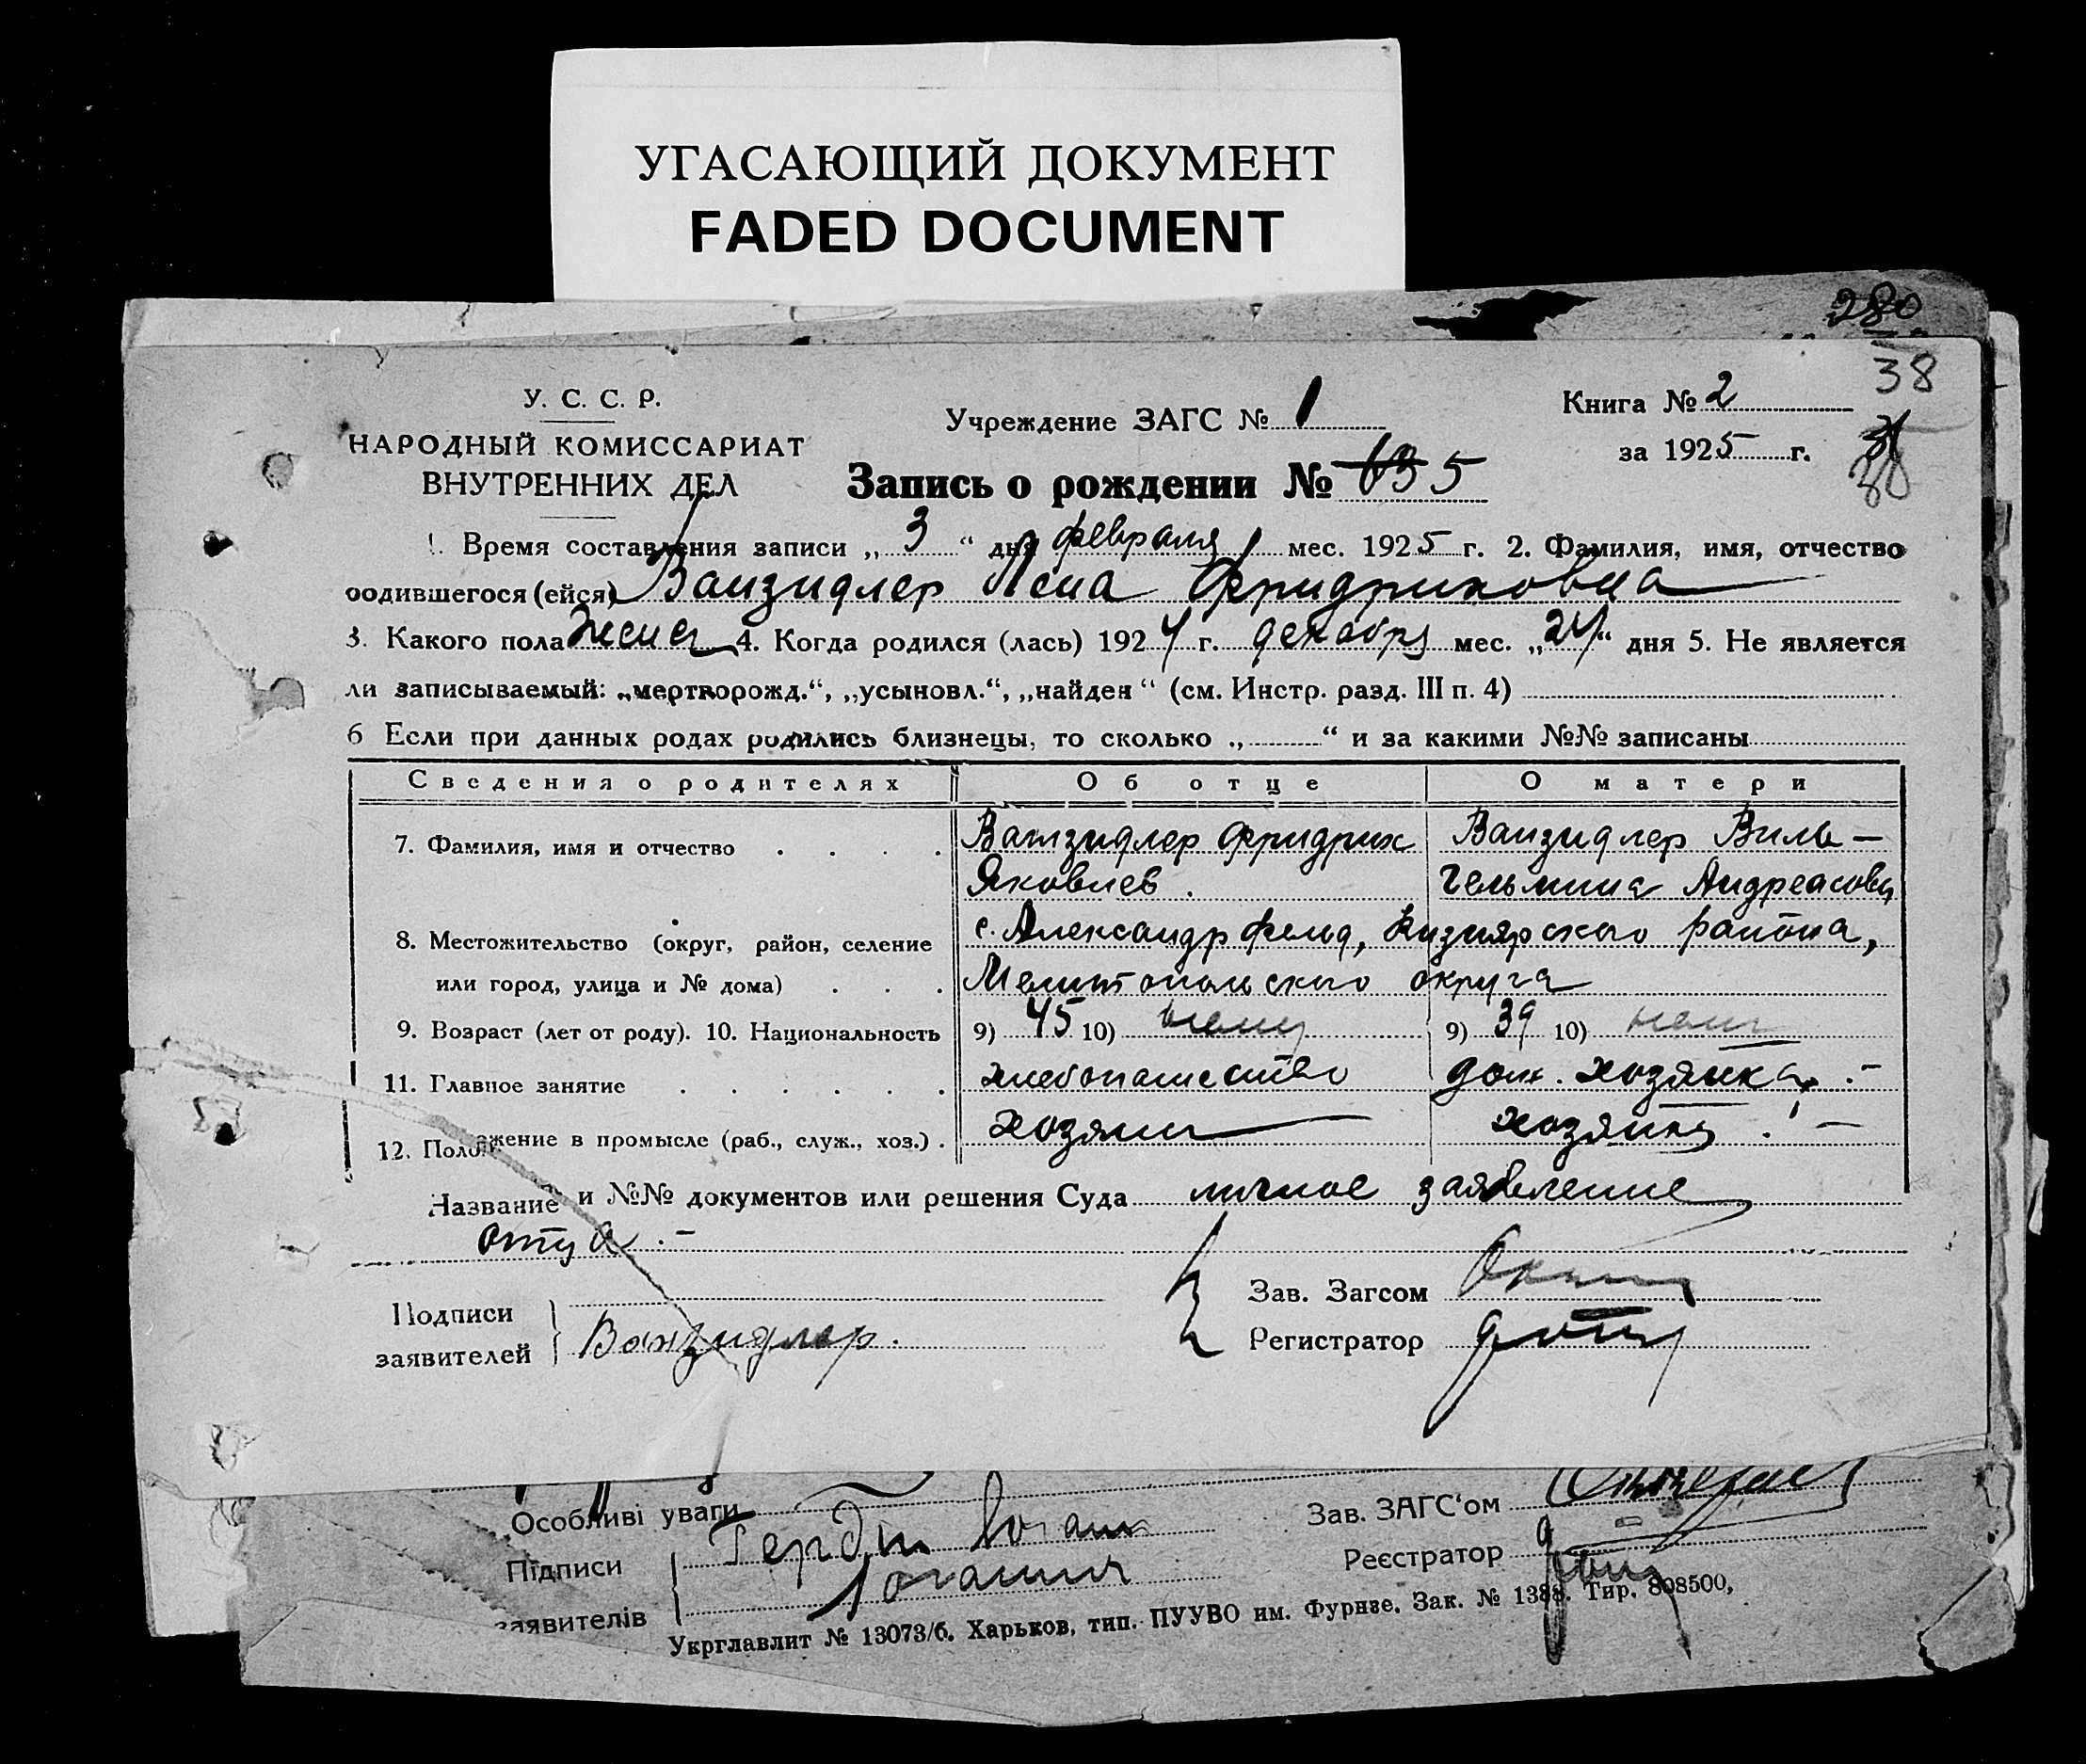 УГАСАЮЩИЙ ДОКУМЕНТ
FADED DOCUMENT
280
38
У. С. С. Р.
НАРОДНЫЙ КОМИССАРИАТ
ВНУТРЕННИХ ДЕЛ
Учреждение ЗАГС № 1
Книга № 2
за 1925 г.
38
Запись о рождении № 5
1. Время составления записи „ 3 “ дня февраля мес. 1925 г. 2. Фамилия, имя, отчество
родившегося (ейся) Ванзидлер Лена Фридриховна
3. Какого пола жена 4. Когда родился (лась) 1924 г. декабря мес. „24“ дня 5. Не является
ли записываемый: „мертворожд.“, „усыновл.“, „найден“ (см. Инстр. разд. III п. 4)
6 Если при данных родах родились близнецы, то сколько „ “ и за какими №№ записаны
Сведения о родителях Об отце О матери
7. Фамилия, имя и отчество Ванзидлер Фридрих Ванзидлер Виль-
Яковлев. гельмина Андреасовна
8. Местожительство (округ, район, селение с. Александрфельд, Кизиярского района,
или город, улица и № дома) Мелитопольского округа
9. Возраст (лет от роду). 10. Национальность 9) 45 10) немц 9) 39 10) нем
11. Главное занятие хлебопашество дом. хозяйка. -
12. Положение в промысле (раб., служ., хоз.) хозяин хозяйка. -
Название и №№ документов или решения Суда личное заявление
отца. -
Подписи
заявителей
Ванзидлер.
Зав. Загсом
Регистратор
Особливі уваги
Підписи
заявителів
Зав. ЗАГС‘ом
Реєстратор
Укрглавлит № 13073/б. Харьков, тип. ПУУВО им. Фурнзе. Зак. № 1388. Тир. 808500,